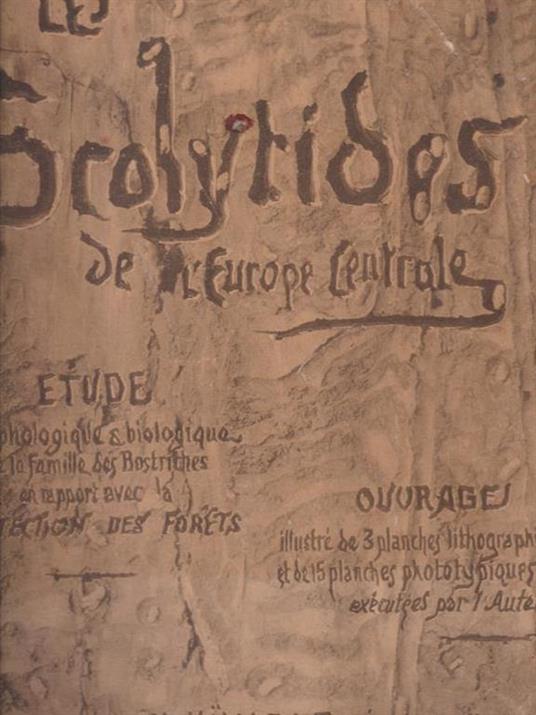 LES
Scolytides
de l'Europe Centrale
ETUDE
phologique & biologique
e la famille des Bostriches
en rapport avec la
TECTION DES FORÊTS
OUVRAGE
illustré de 3 planches lithographi
et de 15 planches phototypiques
exécutées par l'Aute